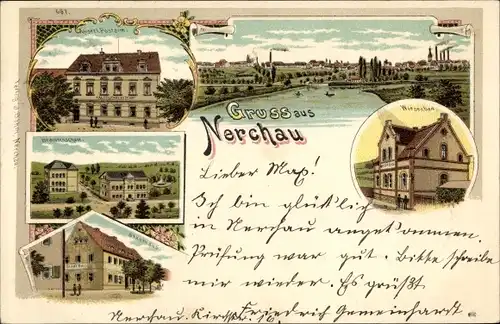 681.
Gruss aus
Nerchau
Lieber Max!
Ich bin glücklich
in Nerchau angekommen.
Prüfung war gut. Bitte schreibe
mir wieder. Es grüßt
Friedrich Gemeinhardt
Nerchau.